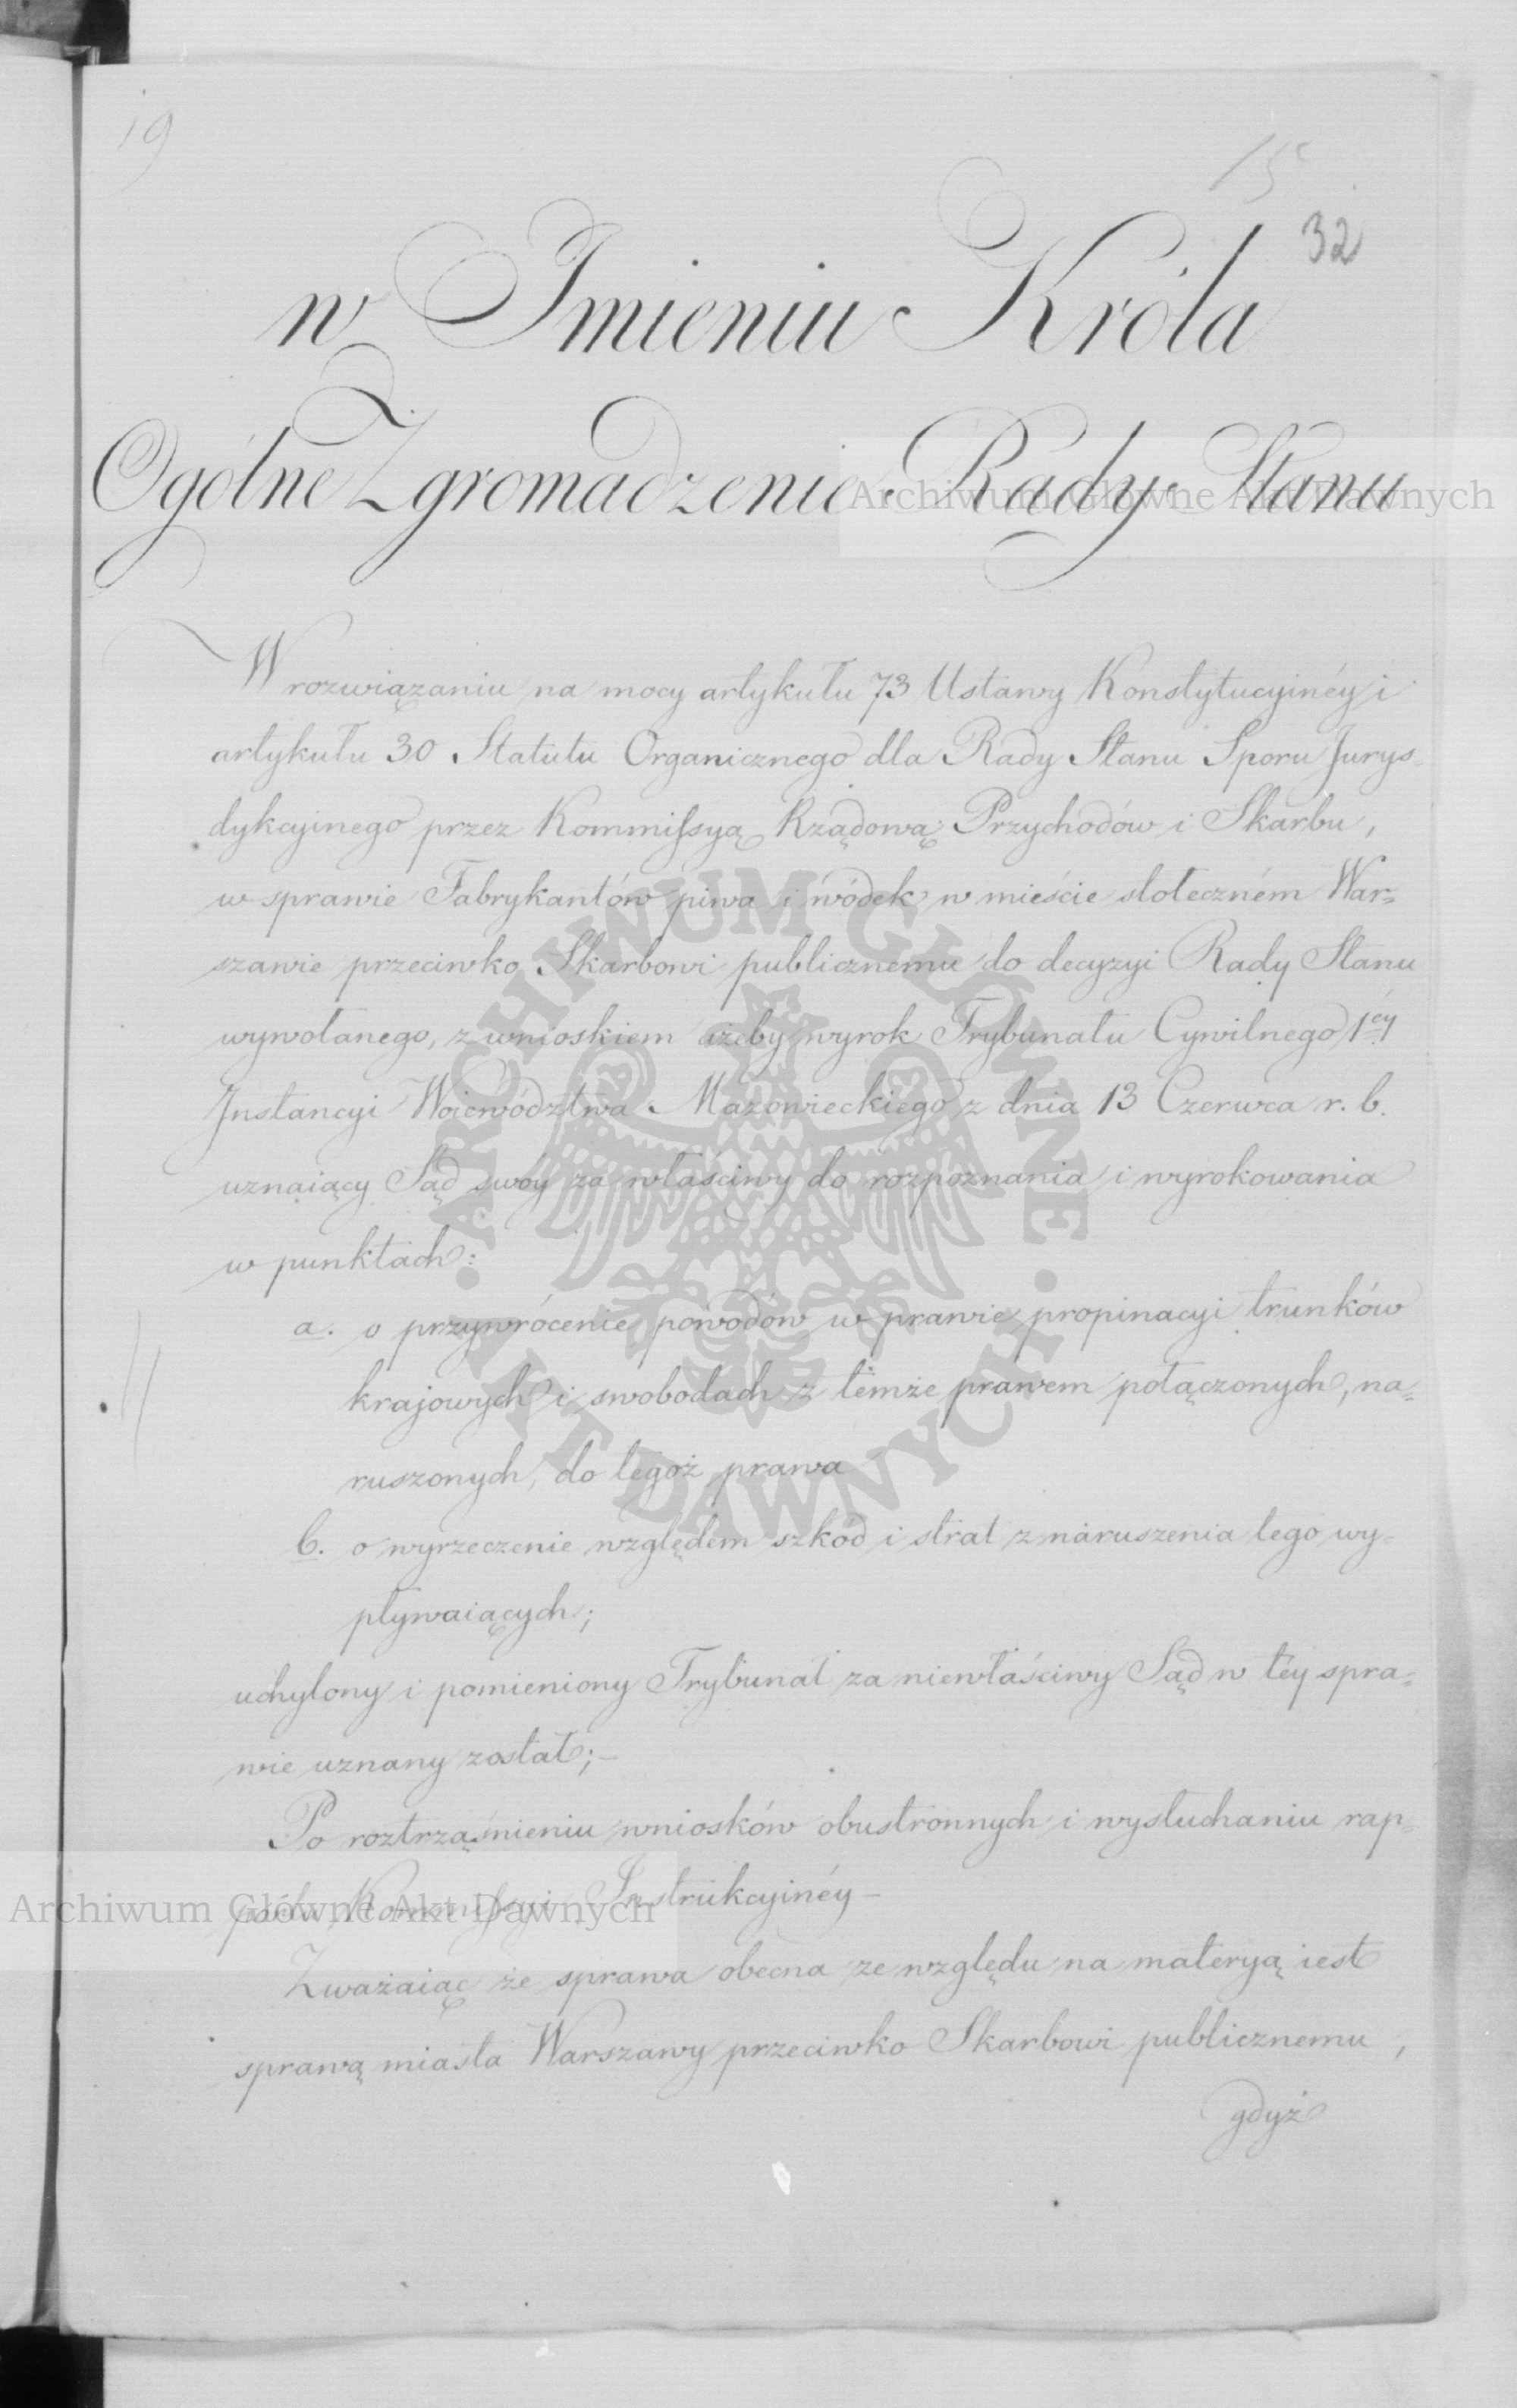 19
15
32
w Imieniu Króla
Ogólne Zgromadzenie Rady Stanu
W rozwiązaniu na mocy artykułu 73 Ustawy Konstytucyinéy i
artykułu 30 Statutu Organicznego dla Rady Stanu Sporu Jurys-
dykcyinego przez Kommissyą Rządową Przychodów i Skarbu,
w sprawie Fabrykantów piwa i wódek w mieście stołeczném War=
szawie przeciwko Skarbowi publicznemu do decyzyi Rady Stanu
wywołanego, z wnioskiem ażeby wyrok Trybunału Cywilnego 1éy
Instancyi Woiewództwa Mazowieckiego z dnia 13 Czerwca r. b.
uznaiący Sąd swóy za właściwy do rozpoznania i wyrokowania
w punktach:
a. o przywrócenie powodów w prawie propinacyi trunków
krajowych i swobodach z témże prawem połączonych, na=
ruszonych, do tegoż prawa
b. o wyrzeczenie względem szkód i strat z naruszenia tego wy-
pływaiących;
uchylony i pomieniony Trybunał za niewłaściwy Sąd w téy spra=
wie uznany został;—
Po roztrząśnieniu wniosków obustronnych i wysłuchaniu rap=
portu Kommissyi Instrukcyinéy —
Zważaiąc że sprawa obecna ze względu na materyą iest
sprawą miasta Warszawy przeciwko Skarbowi publicznemu,
gdyż
Archiwum Główne Akt Dawnych
ARCHIWUM GŁÓWNE · AKT DAWNYCH ·
Archiwum Główne Akt Dawnych